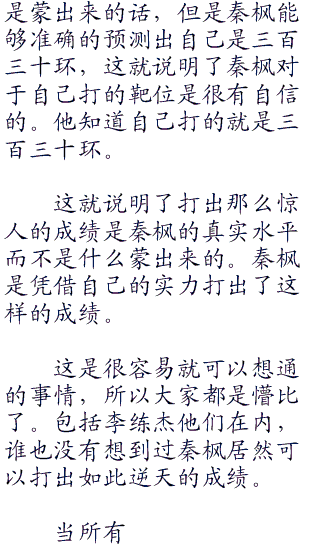 是蒙出来的话，但是秦枫能
够准确的预测出自己是三百
三十环，这就说明了秦枫对
于自己打的靶位是很有自信
的。他知道自己打的就是三
百三十环。
这就说明了打出那么惊
人的成绩是秦枫的真实水平
而不是什么蒙出来的。秦枫
是凭借自己的实力打出了这
样的成绩。
这是很容易就可以想通
的事情，所以大家都是懵比
了。包括李练杰他们在内，
谁也没有想到过秦枫居然可
以打出如此逆天的成绩。
当所有